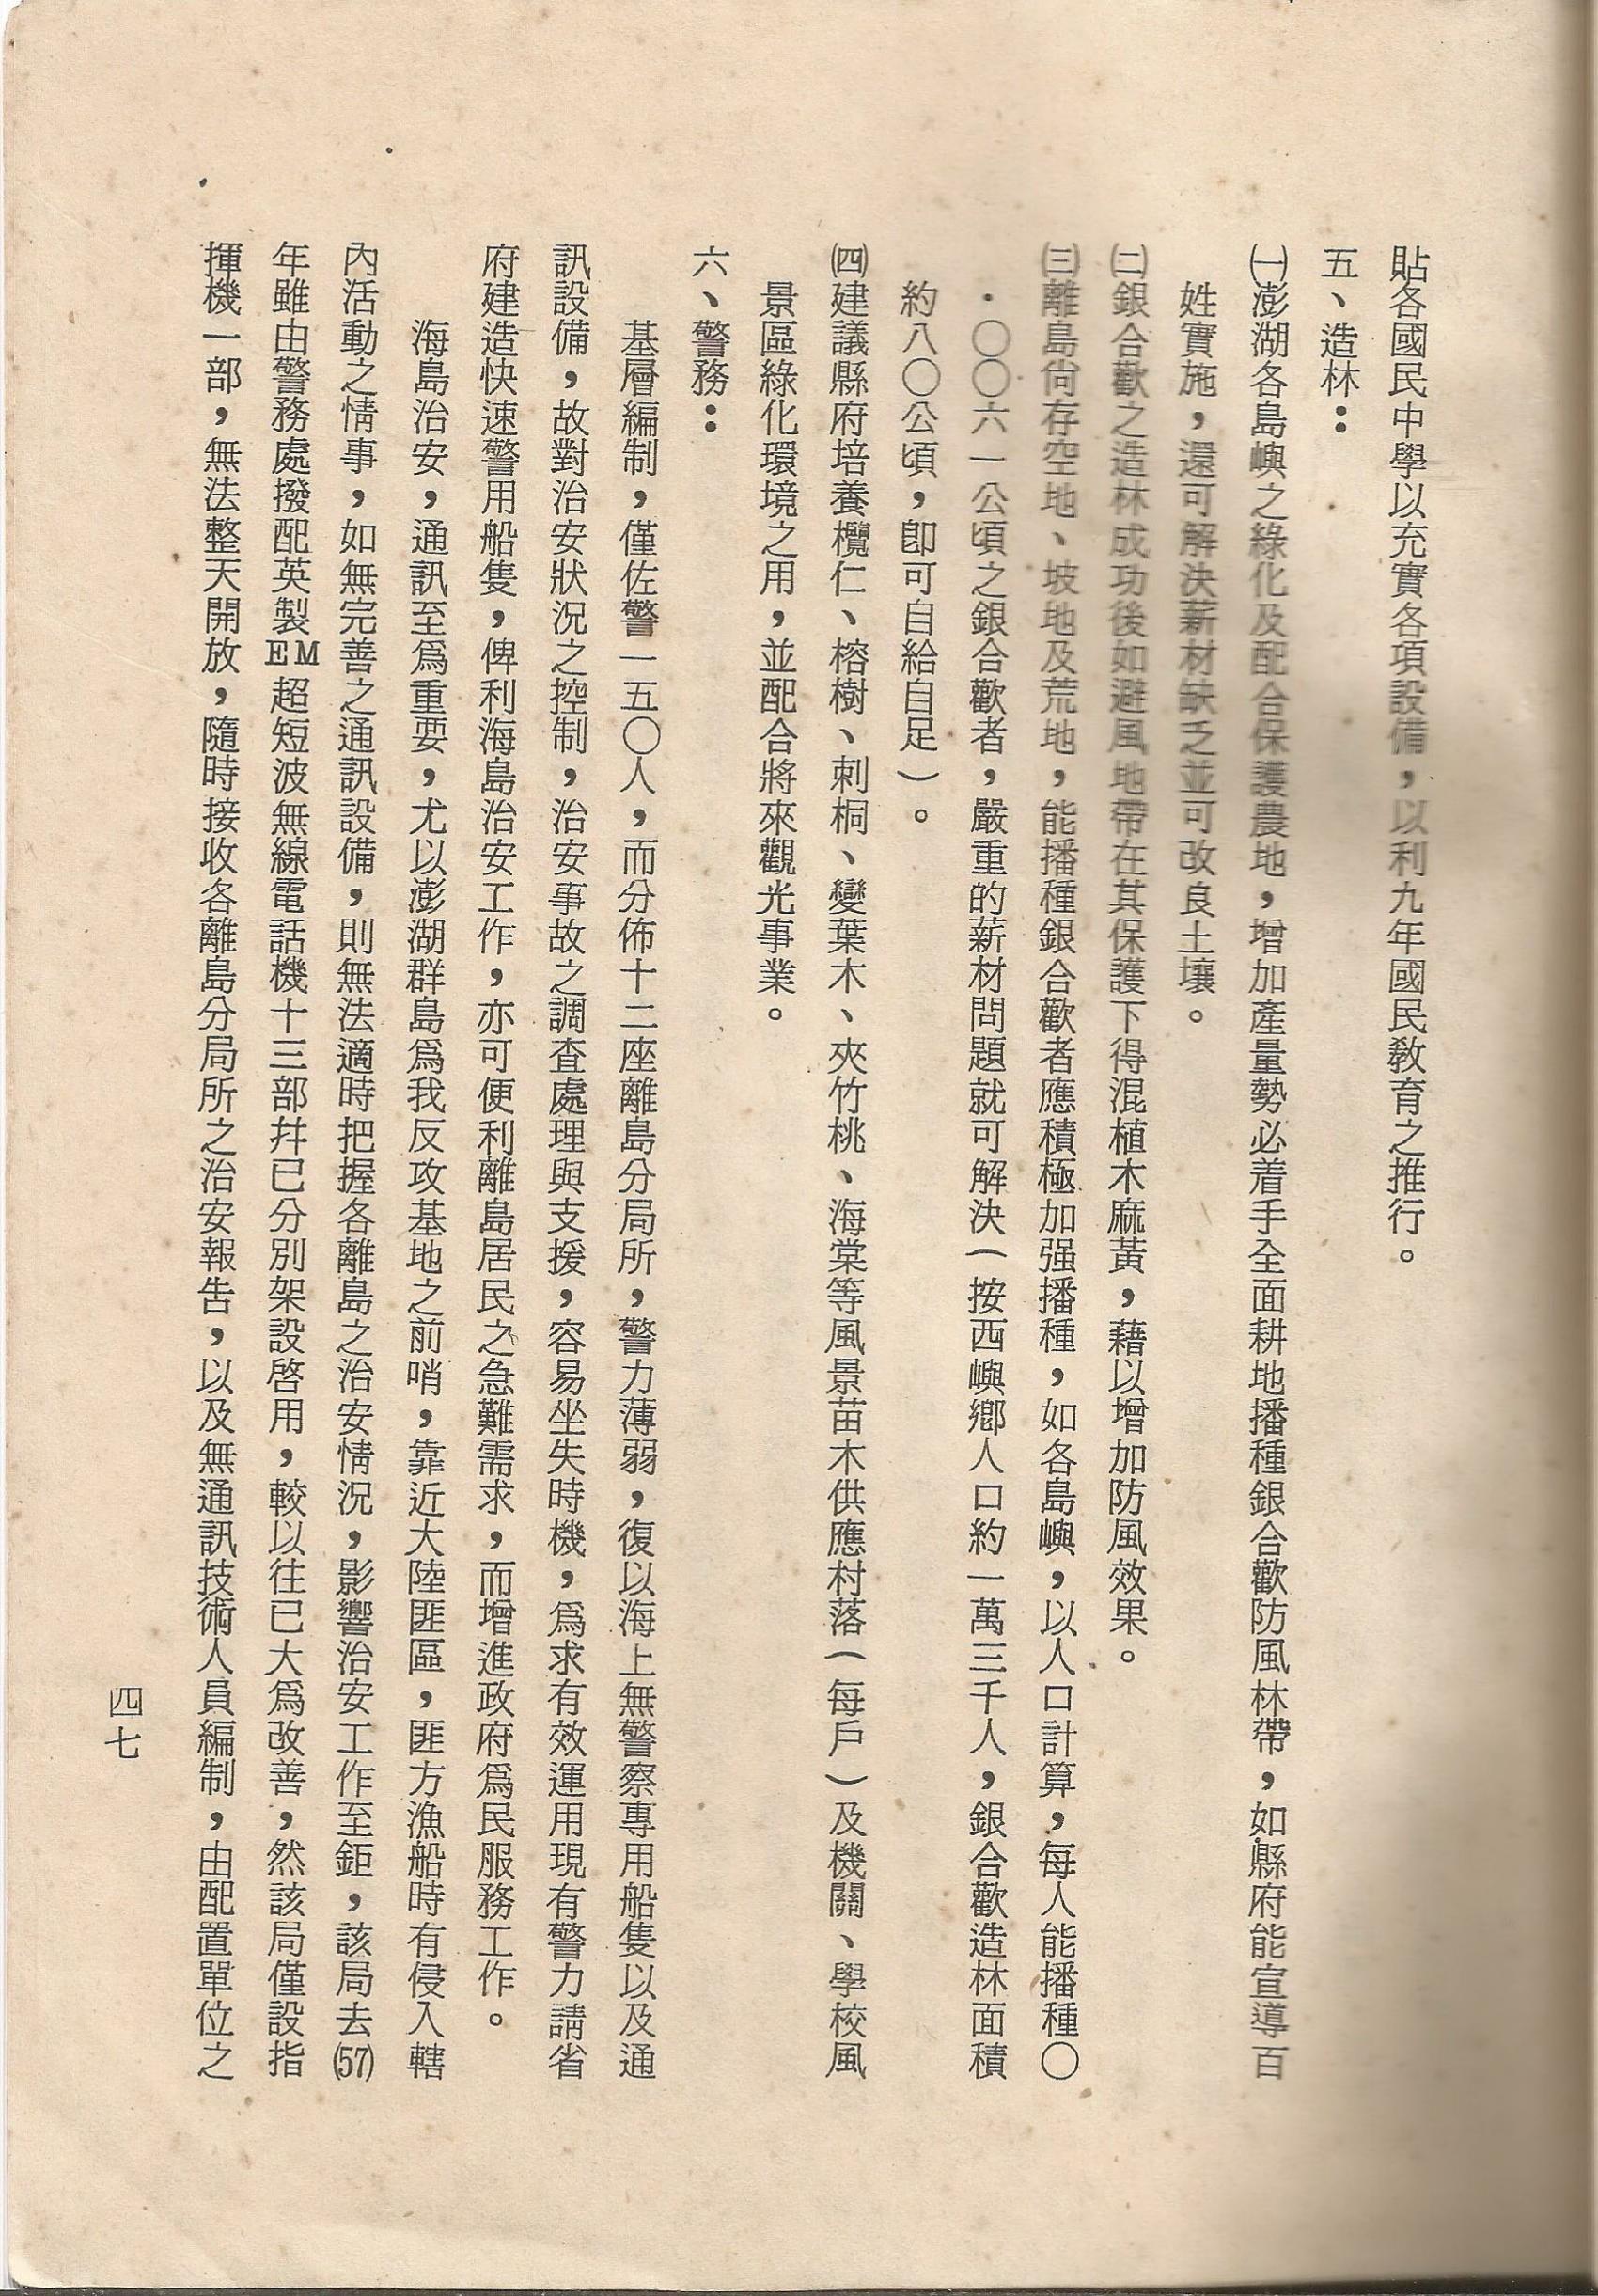 貼各國民中學以充實各項設備，以利九年國民敎育之推行。
五、造林：
㈠澎湖各島嶼之綠化及配合保護農地，增加產量勢必着手全面耕地播種銀合歡防風林帶，如縣府能宣導百
姓實施，還可解決薪材缺乏並可改良土壤。
㈡銀合歡之造林成功後如避風地帶在其保護下得混植木麻黃，藉以增加防風效果。
㈢離島尙存空地、坡地及荒地，能播種銀合歡者應積極加强播種，如各島嶼，以人口計算，每人能播種〇
．〇〇六一公頃之銀合歡者，嚴重的薪材問題就可解決（按西嶼鄉人口約一萬三千人，銀合歡造林面積
約八〇公頃，卽可自給自足）。
㈣建議縣府培養欖仁、榕樹、刺桐、變葉木、夾竹桃、海棠等風景苗木供應村落（每戶）及機關、學校風
景區綠化環境之用，並配合將來觀光事業。
六、警務：
基層編制，僅佐警一五〇人，而分佈十二座離島分局所，警力薄弱，復以海上無警察專用船隻以及通
訊設備，故對治安狀況之控制，治安事故之調查處理與支援，容易坐失時機，爲求有效運用現有警力請省
府建造快速警用船隻，俾利海島治安工作，亦可便利離島居民之急難需求，而增進政府爲民服務工作。
海島治安，通訊至爲重要，尤以澎湖群島爲我反攻基地之前哨，靠近大陸匪區，匪方漁船時有侵入轄
內活動之情事，如無完善之通訊設備，則無法適時把握各離島之治安情況，影響治安工作至鉅，該局去(57)
年雖由警務處撥配英製EM超短波無線電話機十三部幷已分別架設啓用，較以往已大爲改善，然該局僅設指
揮機一部，無法整天開放，隨時接收各離島分局所之治安報吿，以及無通訊技術人員編制，由配置單位之
四七